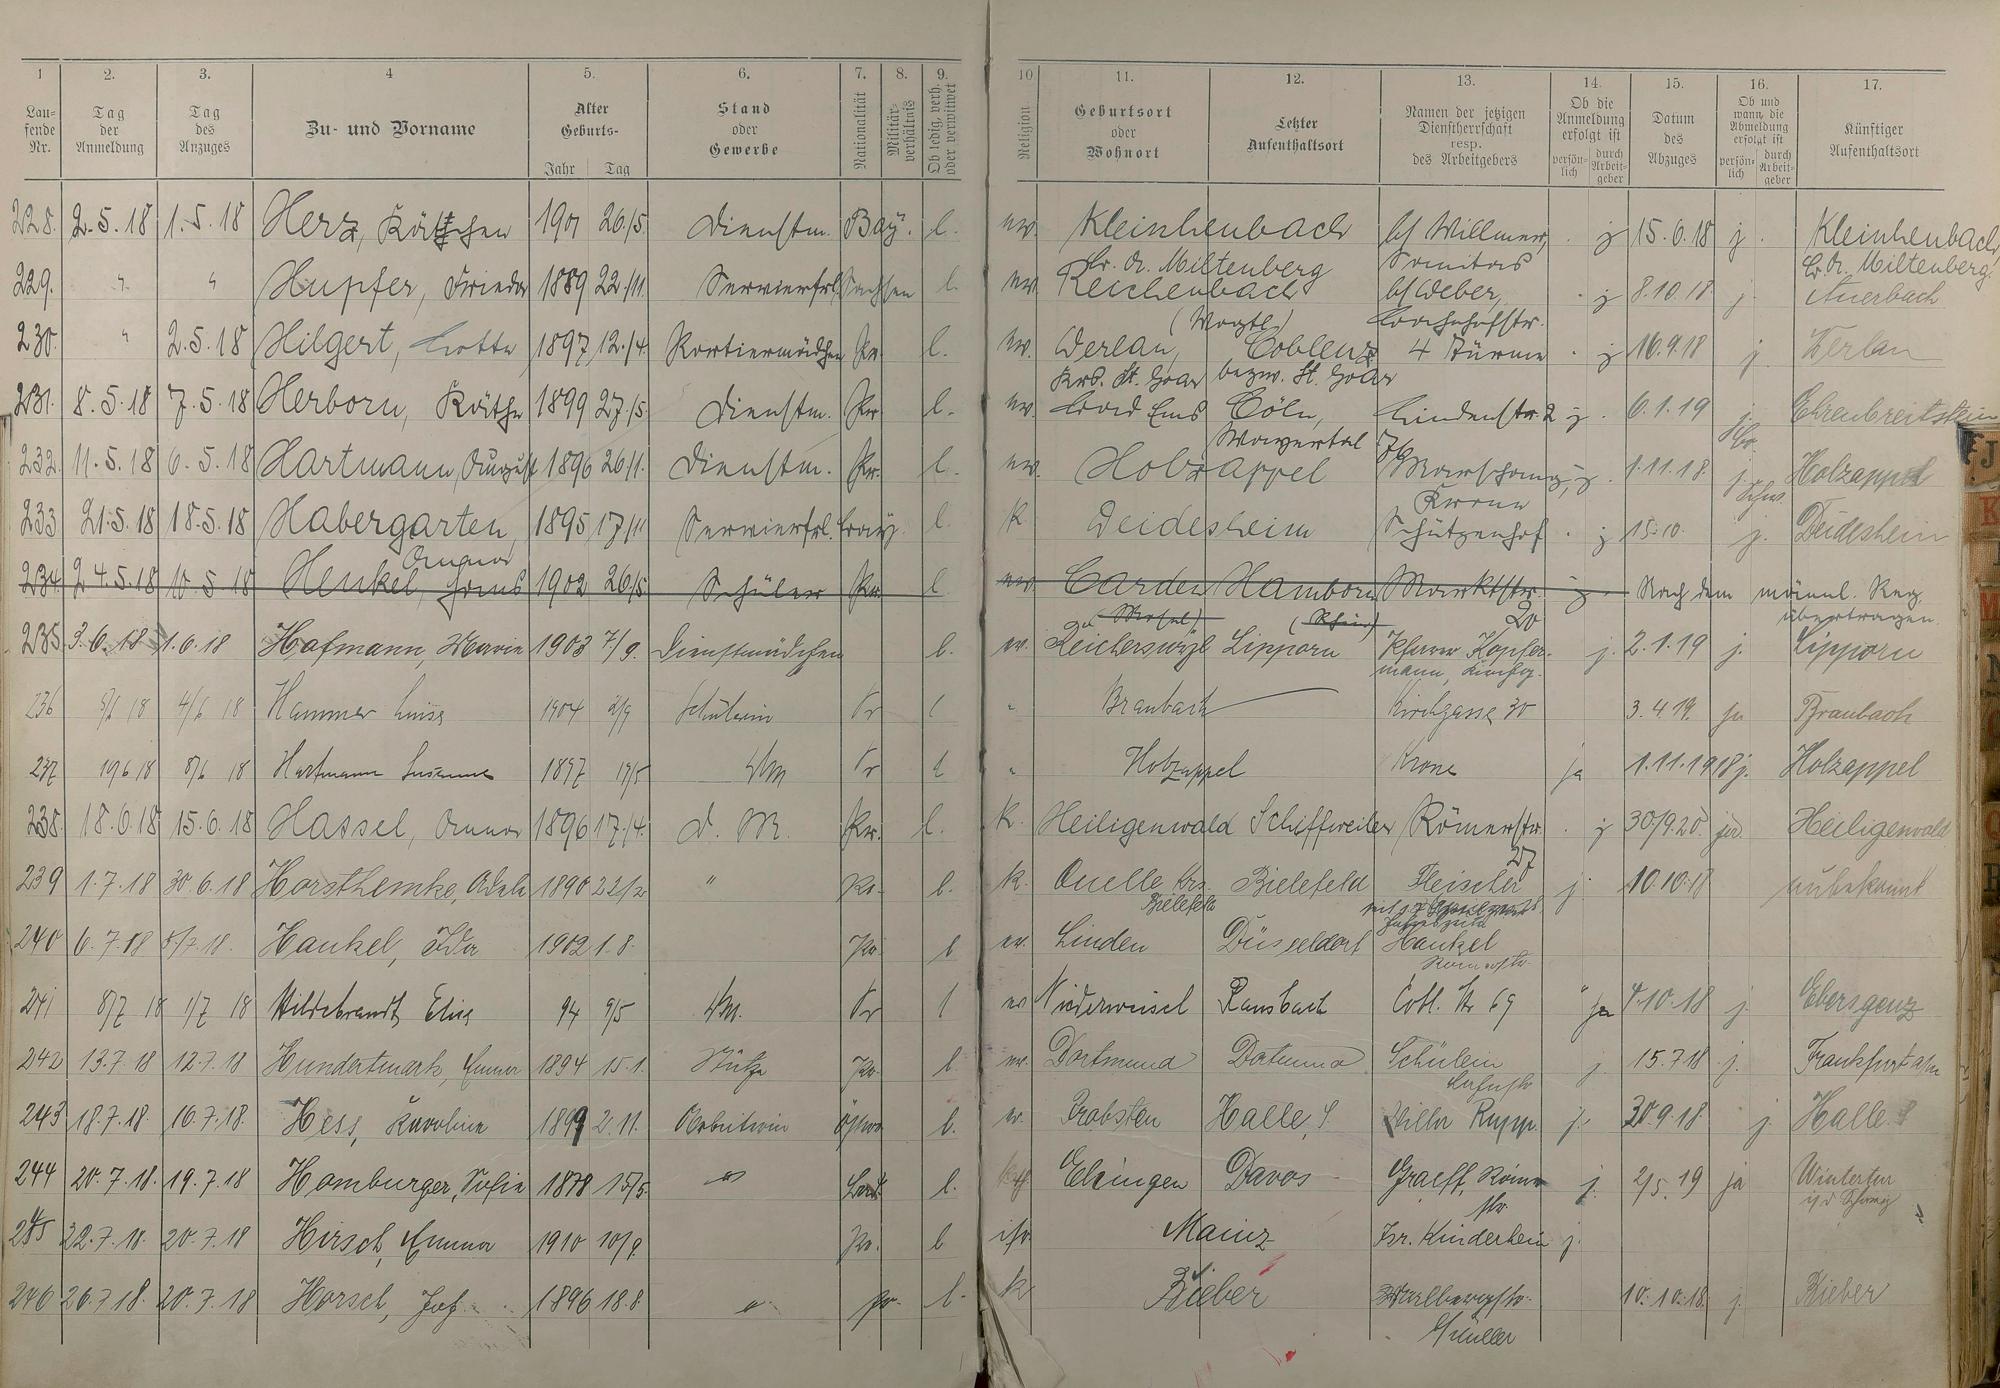 1 2. 3. 4 5. 6. 7. 8. 9. 10 11. 12. 13. 14. 15. 16. 17.
Lau-
fende
Nr.
Tag
der
Anmeldung
Tag
des
Anzuges
Zu- und Vorname
Alter
Geburts-
Jahr Tag
Stand
oder
Gewerbe
Nationalität
Militär-
verhältnis
Ob ledig, verh.
oder verwitwet
Religion
Geburtsort
oder
Wohnort
Letzter
Aufenthaltsort
Namen der jetzigen
Dienstherrschaft
resp.
des Arbeitgebers
Ob die
Anmeldung
erfolgt ist
persön-
lich
durch
Arbeit-
geber
Datum
des
Abzuges
Ob und
wann die
Abmeldung
erfolgt ist
persön-
lich
durch
Arbeit-
geber
Künftiger
Aufenthaltsort
228. 2.5.18 1.5.18 Herz, Kätchen 1901 26/5. Dienstm. Bay. l. ev. Kleinheubach bf Willmer, j 15.6.18 j. Kleinheubach
Br. A. Miltenberg Br. A. Miltenberg
229. " " Hupfer, Frieda 1889 22./11. Servierfrl. Sachsen l. ev. Reichenbach bf Weber, j 8.10.18 j. Auerbach
(Vogtl.) Bahnhofstr.
230. " 2.5.18 Hilgert, Lotte 1897 12./4. Portiermädchen Pr. l. ev. Werlau, Coblenz 4 Türme j 16.9.18 j Werlau
Krs. St. Goar bezw. St. Goar
231. 8.5.18 7.5.18 Herborn, Käthe 1899 27./5. Dienstm. Pr. l. ev. Bad Ems Cöln, Lindenstr. 2 j. 6.1.19 j. Ehrenbreitstein
232. 11.5.18 6.5.18 Hartmann, August 1896 26/1. Dienstm. Pr. l. ev. Holzappel j. 1.11.18. j. Holzappel
Krone
233 21.5.18 18.5.18 Habergarten, 1895 17/11 Servierfrl. Bay. l. k. Deidesheim Schützenhof j 15.10. j. Deidesheim
Anna
234. 24.5.18 10.5.18 Henkel, Hans 1902 26/5 Schüler Pr. l ev. Carden Hamborn Marktstr. j Nach dem männl. Reg.
(Mosel) (Rhein) 20 übertragen.
235 3.6.18 1.6.18 Hofmann, Marie 1903 7/9. Dienstmädchen l. ev. Lipporn Pfarrer Kopfer- j. 2.1.19 j. Lipporn
mann,
236 5/6 18 4/6 18 Hammer Luise 1904 Schülerin Pr l " Braubach Kirchgasse 30 3.4.19. ja Braubach
237 19 6 18 8/6 18 Hartmann Susanne 1897 19/5 DM Pr l " Holzappel Krone ja 1.11.1918 j. Holzappel
238. 18.6.18 15.6.18 Hassel, Anna 1896 17./4. d. M. Pr. l. k. Heiligenwald Schiffweiler Römerstr. j 30/9.20. ja Heiligenwald
27
239 1.7.18 30.6.18 Horsthemke, Adele 1890 22/2 " Pr. l. k. Quelle Krs. Bielefeld Fleischer j. 10.10.18 unbekannt
Bielefeld
240 6.7.18 5/7.18. Hankel, Ida 1902 1.8. Pr. l ev. Linden Düsseldorf Hankel
Römerstr.
241 8/7 18 1/7 18 Hildebrandt, Elise 94 9/5 DM. Pr l ev Niederweisel Ransbach Cobl. Str 69 ja 4.10.18 j.
242 13.7.18 12.7.18 Hundertmark, Emmi 1894 15.1. Stütze Pr. l. ev. Dortmund Schülein j. 15.7.18 j. Frankfurt a/M
243 18.7.18. 16.7.18. Hess, Karoline 1899 2.11. Arbeiterin l. ev. Probsten Halle, S. Villa Rupp. j. 30.9.18 j. Halle S
244 20.7.18. 19.7.18 Homburger, Sofie 1878 15/5. " Bad. l. Davos Graeff, Römer- j. 2/5.19 ja Wintertur
str. i/d Schweiz
245 22.7.18. 20.7.18 Hirsch, Emma 1910 10/9. Pr. l isr. Mainz Isr. Kinderheim j.
246 26.7.18. 20.7.18 Horsch, Jos. 1896 18.8. " pr. l. k Bieber 10.10.18. j. Bieber
Müller